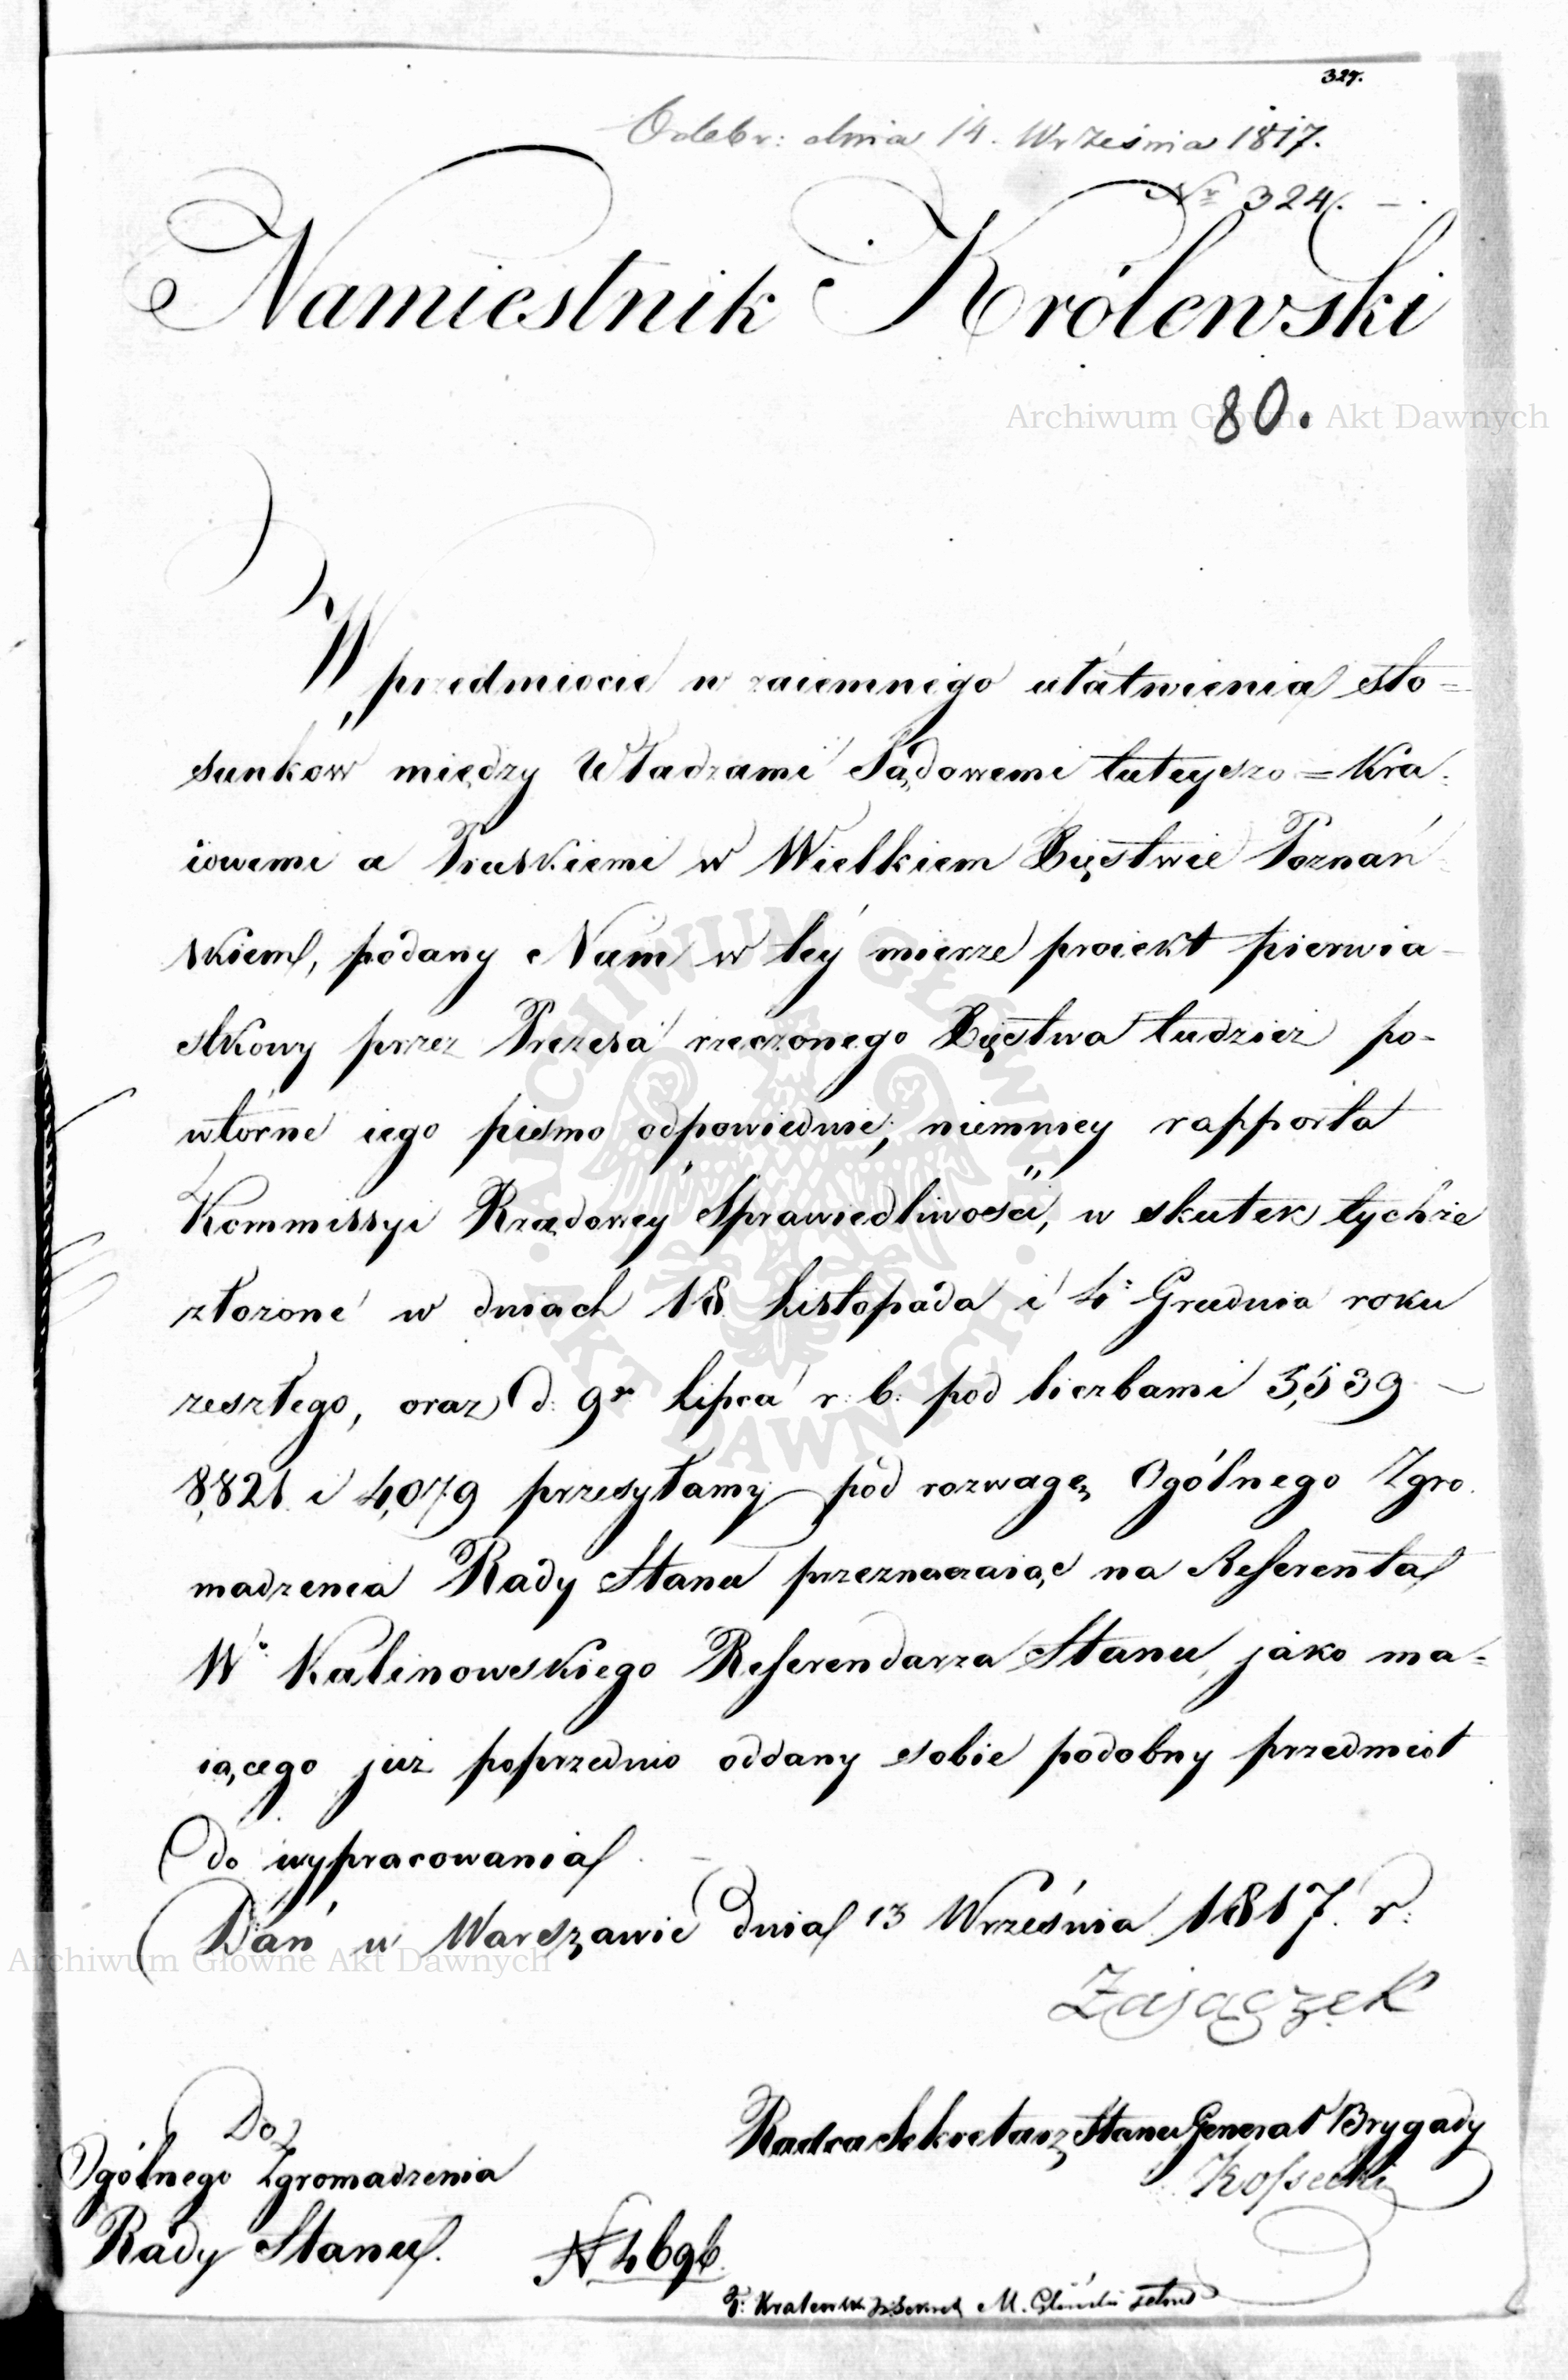 327.
Odebr: dnia 14. Września 1817.
Nr 324. –
Namiestnik Królewski
80.
Archiwum Główne Akt Dawnych
W przedmiocie wzaiemnego ułatwienia sto=
sunków między Władzami Sądowemi tuteyszo=Kra-
iowemi a Pruskiemi w Wielkiem Xięstwie Poznań-
skiem, podany Nam w téy mierze proiekt pierwia-
stkowy przez Prezesa rzeczonego Xięstwa tudzież po-
wtórne iego pismo odpowiednie, niemniey rapporta
Kommissyi Rządowey Sprawiedliwości, w skutek tychże
złożone w dniach 18 Listopada i 4: Grudnia roku
zeszłego, oraz d: 9r Lipca r: b: pod liczbami 5,539 –
8,821 i 4,079 przesyłamy pod rozwagę Ogólnego Zgro-
madzenia Rady Stanu przeznaczaiąc na Referenta
Wo Kalinowskiego Referendarza Stanu, jako ma=
iącego już poprzednio oddany sobie podobny przedmiot
do wypracowania. –
Dań w Warszawie dnia 13 Września 1817. r:
Archiwum Główne Akt Dawnych
Zajączek
Radca Sekretarz Stanu Generał Brygady
Kossecki
Do
Ogólnego Zgromadzenia
Rady Stanu.
N 4696.
M.
ARCHIWUM GŁÓWNE · AKT DAWNYCH ·